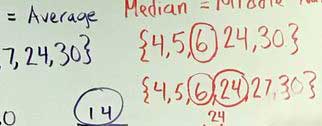 = Average Median = Middle
7,24,30} {4,5,6,24,30}
{4,5,6,24,27,30}
14 24